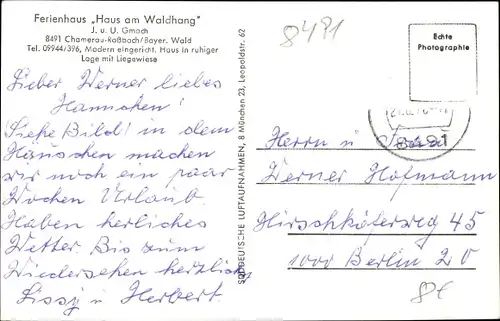 Ferienhaus „Haus am Waldhang"
J. u. U. Gmach
8491 Chamerau-Roßbach/Bayer. Wald
Tel. 09944/396, Modern eingericht. Haus in ruhiger
Lage mit Liegewiese
Lieber Werner liebes
Hannchen!
Siehe Bild! in dem
Häuschen machen
wir noch ein paar
Wochen Urlaub.
Haben herrliches
Wetter. Bis zum
Wiedersehen herzlichs
Lissy u Herbert
SÜDDEUTSCHE LUFTAUFNAHMEN, 8 München 23, Leopoldstr. 62
8491
Echte
Photographie
8491
Herrn u Frau
Werner Hofmann
Hirschkäferweg 45
1000 Berlin 20
8€